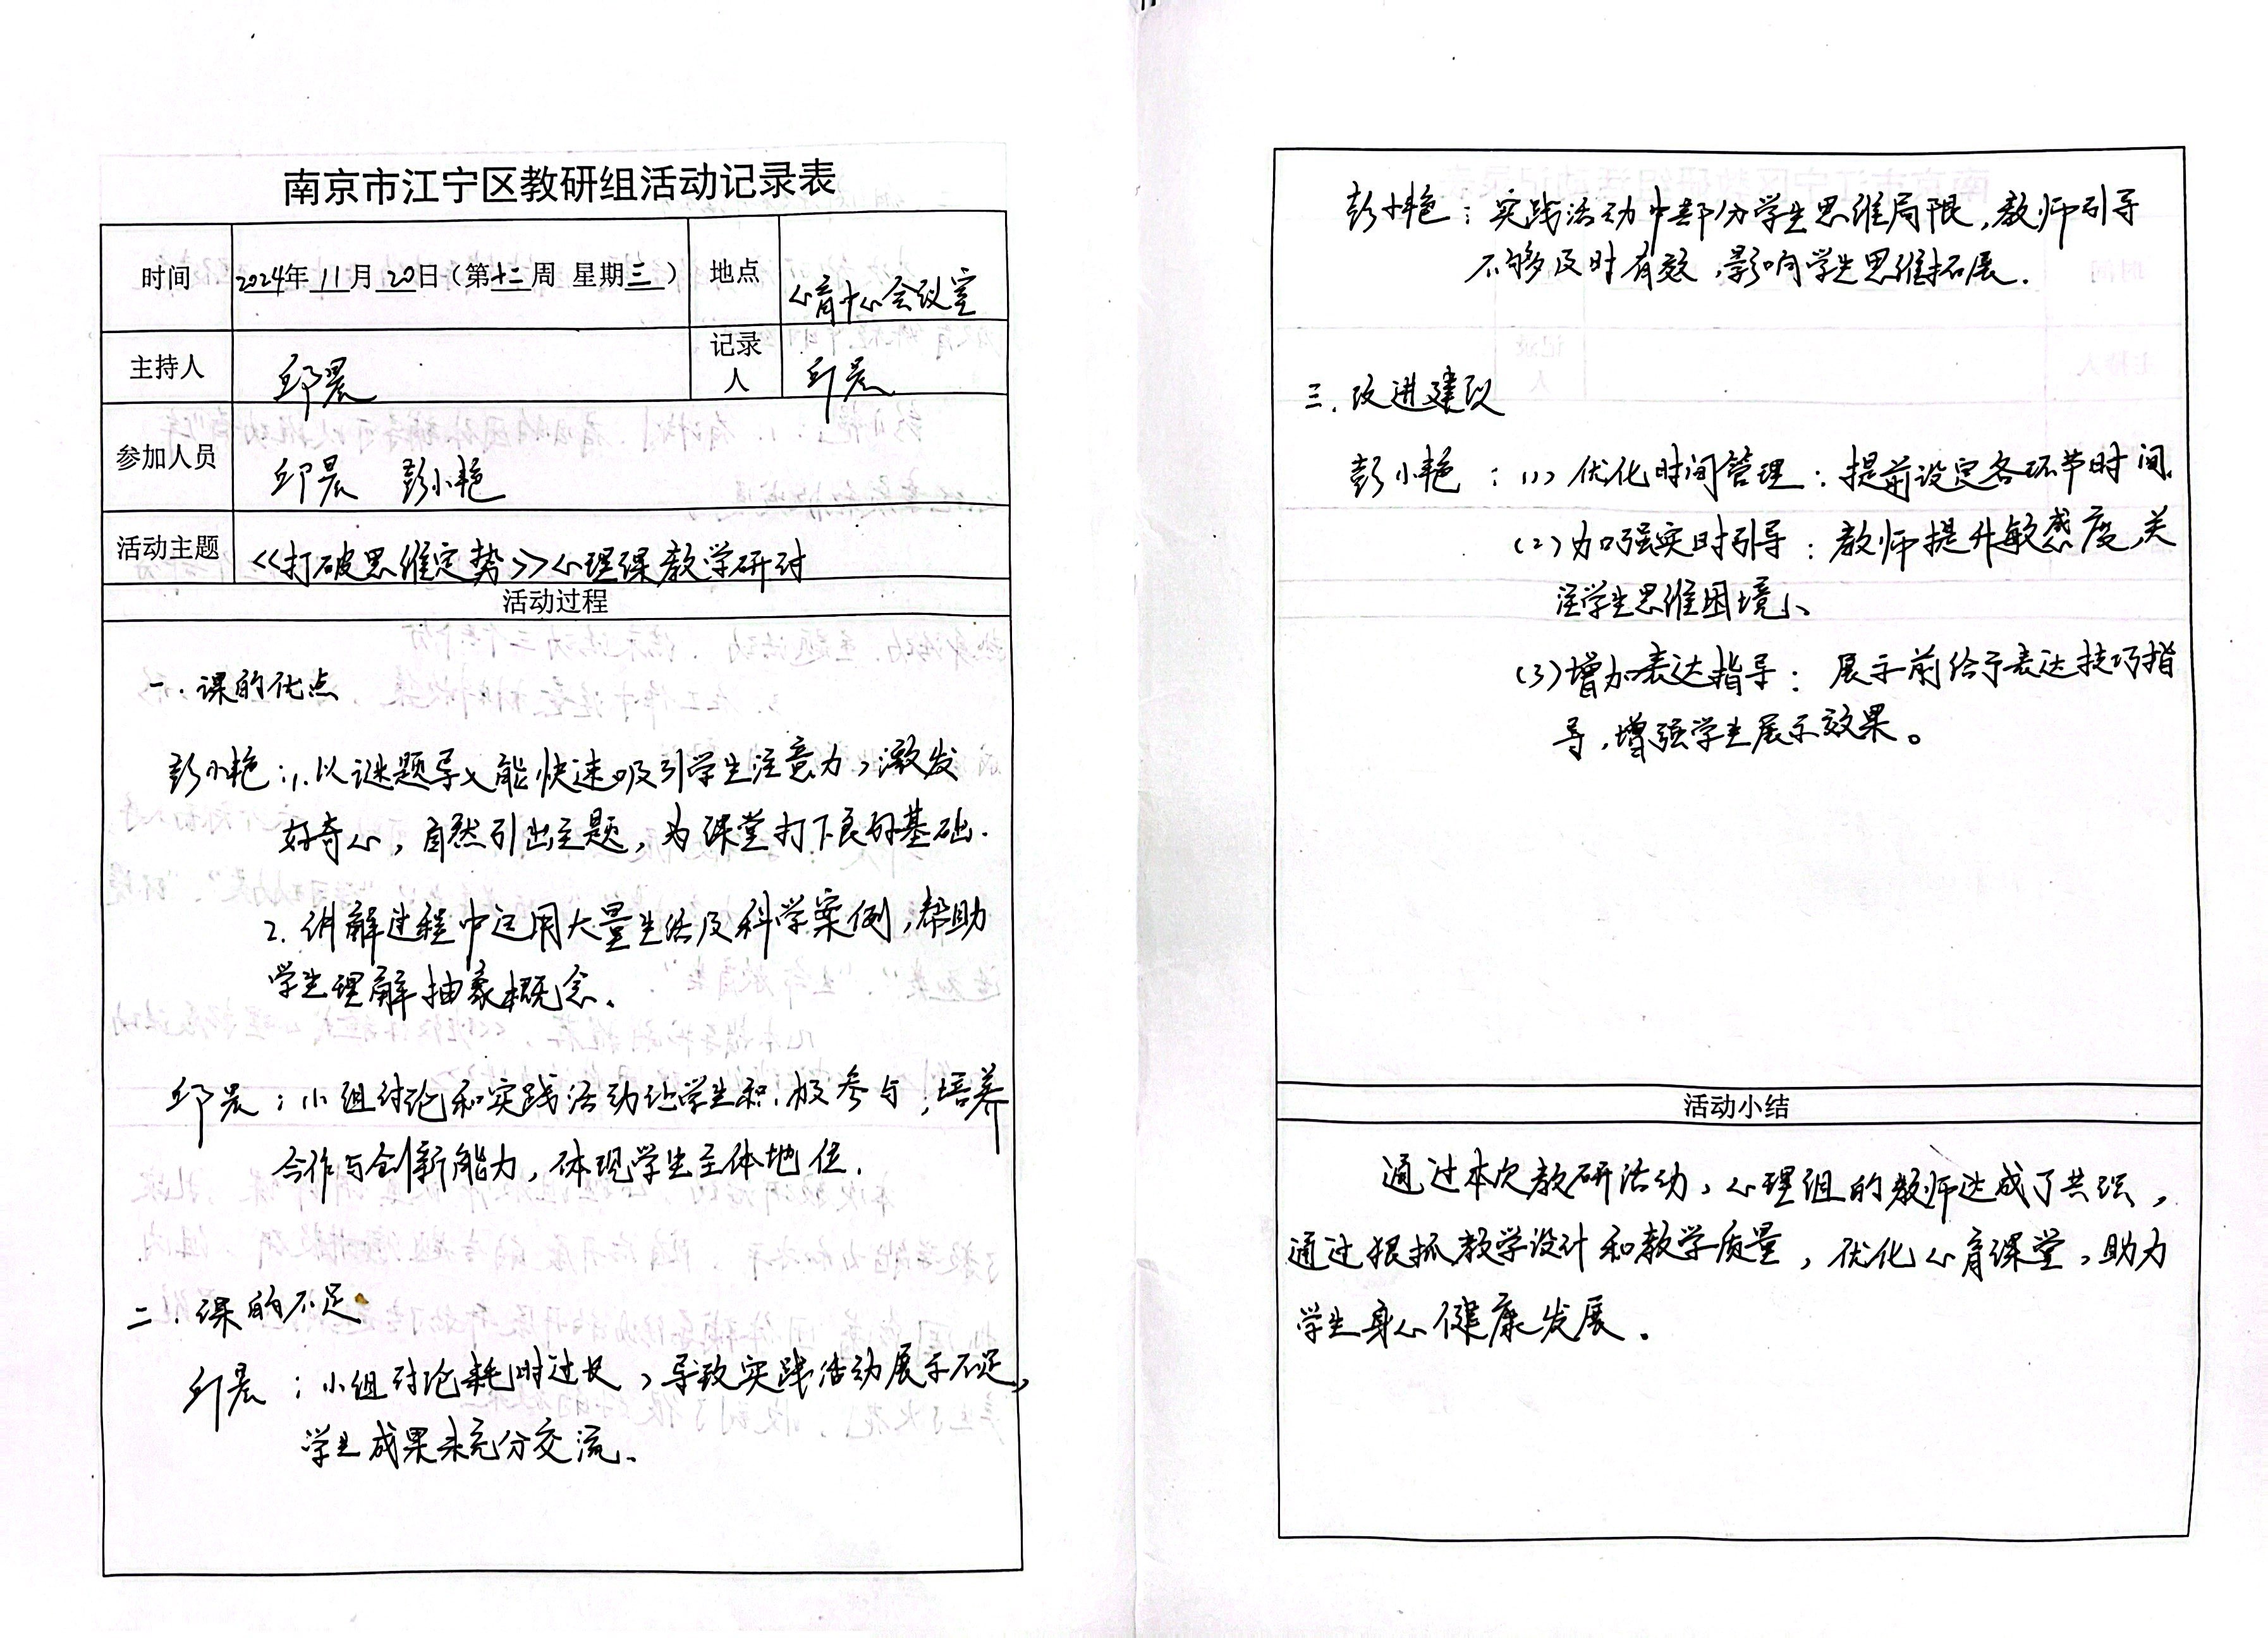 南京市江宁区教研组活动记录表
时间 2024年 11 月 20 日（第十二周 星期三） 地点 心育中心会议室
主持人 邱晨 记录人 邱晨
参加人员 邱晨 彭小艳
活动主题 《打破思维定势》心理课教学研讨
活动过程
一. 课的优点
彭小艳：1. 以谜题导入能快速吸引学生注意力，激发
好奇心，自然引出主题，为课堂打下良好基础.
2. 讲解过程中运用大量生活及科学案例，帮助
学生理解抽象概念、
邱晨：小组讨论和实践活动让学生积极参与，培养
合作与创新能力，体现学生主体地位.
二. 课的不足
邱晨：小组讨论耗时过长，导致实践活动展示不足，
学生成果未充分交流、
彭小艳：实践活动中部分学生思维局限，教师引导
不够及时有效，影响学生思维拓展.
三. 改进建议
彭小艳：(1) 优化时间管理：提前设定各环节时间、
(2) 加强实时引导：教师提升敏感度，关
注学生思维困境、
(3) 增加表达指导：展示前给予表达技巧指
导，增强学生展示效果。
活动小结
通过本次教研活动，心理组的教师达成了共识，
通过狠抓教学设计和教学质量，优化心育课堂，助力
学生身心健康发展。